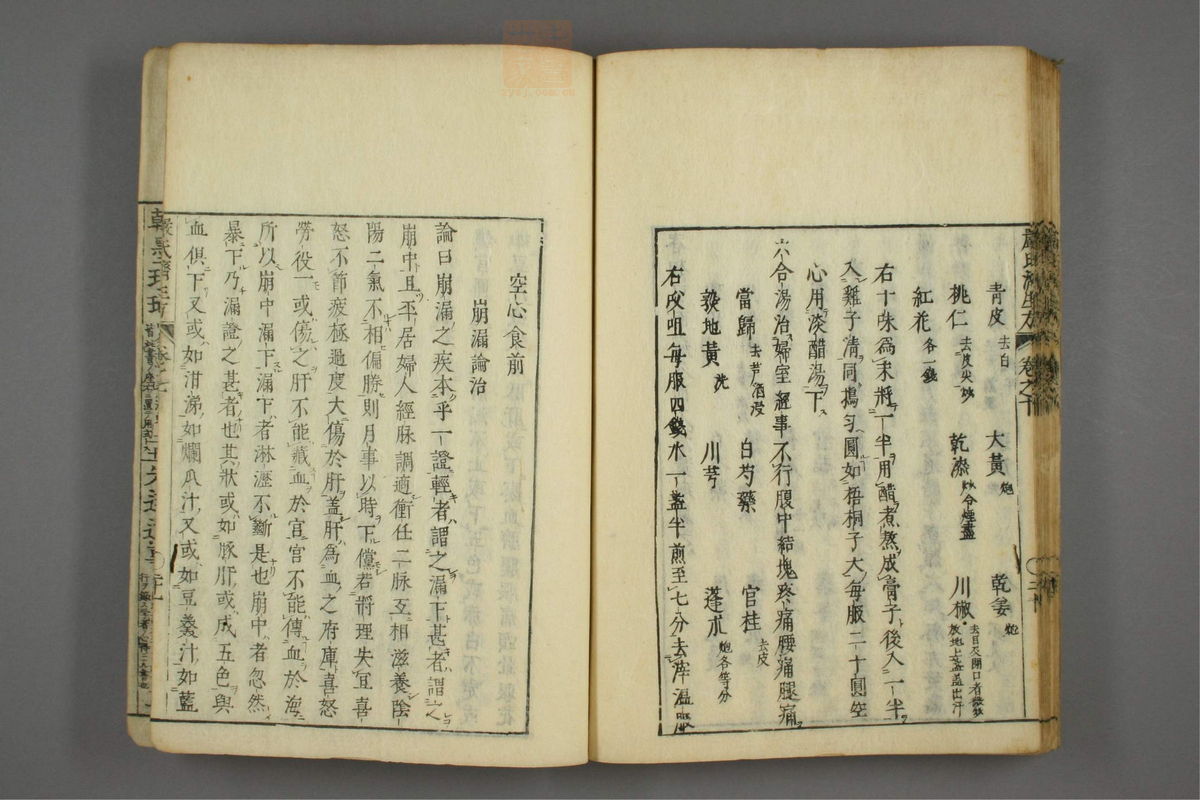 青皮去白 大黃炮 乾姜炮
桃仁去皮尖炒 乾漆炒令煙盡 川椒去目及閉口者微炒放地上盞蓋出汗
紅花各一錢
右十味為末將一半用醋煮熬成膏子後入一半
入雞子清同搗勻圓如梧桐子大每服二十圓空
心用淡醋湯下
六合湯治婦室經事不行腹中結塊疼痛腰痛腿痛
當歸去芦酒浸 白芍藥 官桂去皮
熟地黃洗 川芎 蓬朮炮各等分
右㕮咀每服四錢水一盞半煎至七分去滓溫服
空心食前
崩漏論治
論曰崩漏之疾本乎一證輕者謂之漏下甚者謂之
崩中且平居婦人經脉調適衝任二脉互相滋養陰
陽二氣不相偏勝則月事以時下儻若將理失宜喜
怒不節疲極過度大傷於肝蓋肝為血之府庫喜怒
勞役一或傷之肝不能藏血於宮宮不能傳血於海
所以崩中漏下漏下者淋瀝不斷是也崩中者忽然
暴下乃漏證之甚者也其狀或如豚肝或成五色與
血俱下又或如泔涕如爛瓜汁又或如豆羹汁如藍
嚴氏濟生方 卷之十
zysj.com.cn